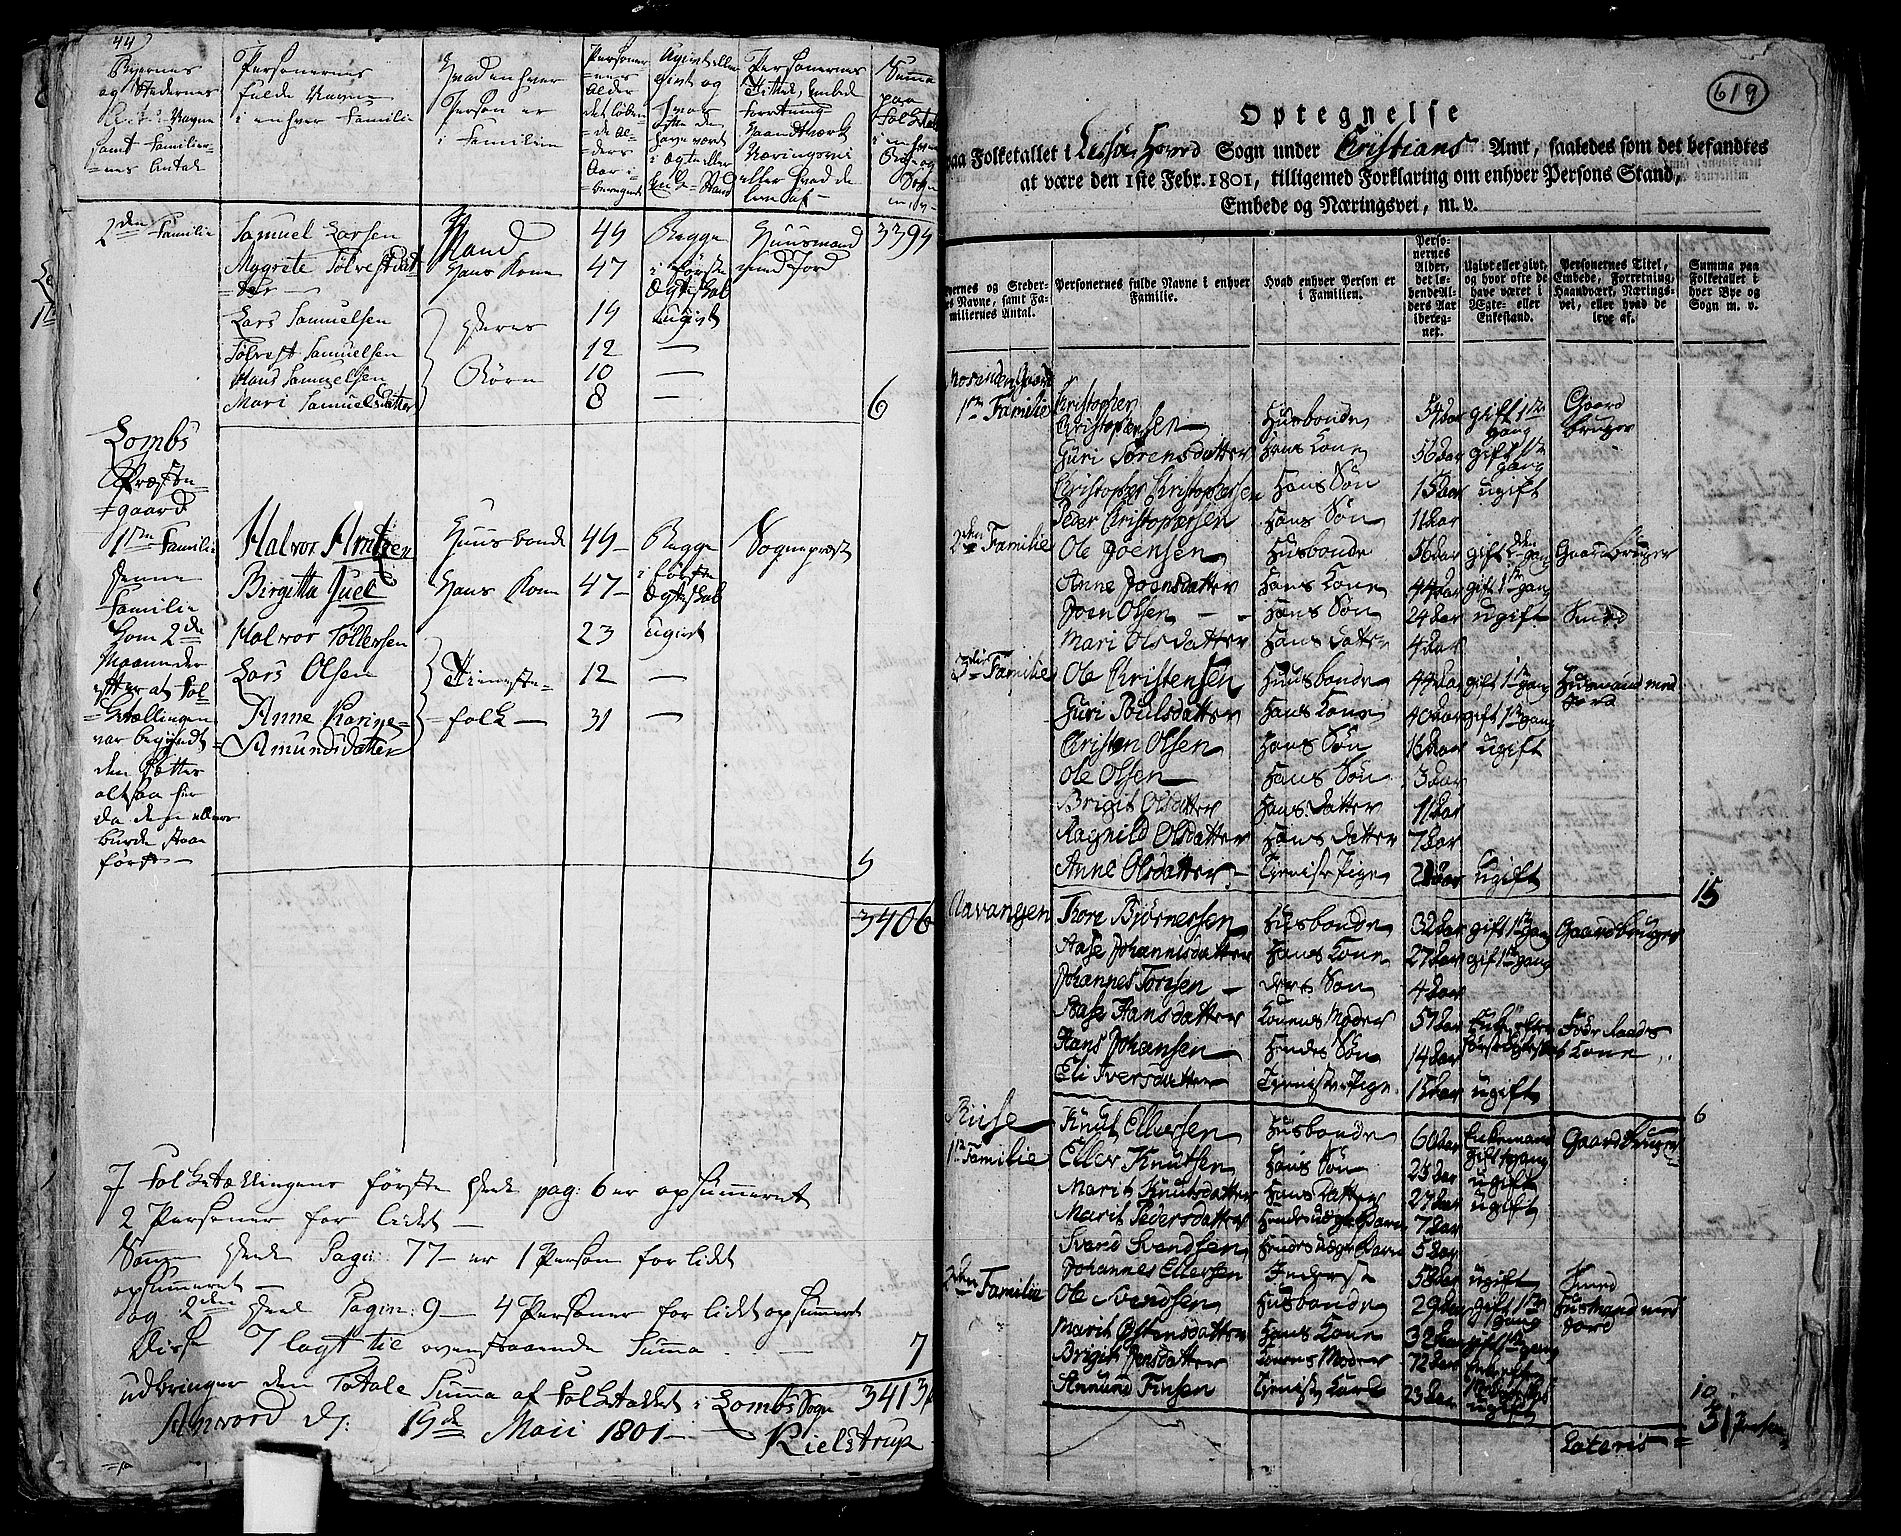 44
Byernes og Stedernes Navne samt Familiernes Antal
Personernes fulde Navne i enhver Familie
Hvad enhver Person er i Familien
Personernes Alder det løbende Alders Aar iberegnet
Ugivt eller givt og hvor ofte de have været i Ægte eller Enke-Stand
Personernes Tittel, Embede Forretning Haandværk Næringsvei eller hvad de leve af
Summa paa Folketallet i enhver Bye og Sogn m. v.
2den Familie Samuel Larsen Mand 49 Begge Huusmand 3394
Magrete Tølvesdatter Hans Kone 47 i første Ægteskab med Jord
Lars Samuelsen deres 19 ugivt
Tølvest Samuelsen 12 —
Hans Samuelsen Børn 10 —
Mari Samuelsdatter 8 — 6
Lombs
Præste-
gaard
1ste Familie Halvor Arntzen Huusbonde 49 Begge Sognepræst
denne Birgitta Juel Hans Kone 47 i første Ægteskab
Familie
som 2de Halvor Tollersen 23 ugivt
Maaneder
efter at Fol- Lars Olsen Tieneste- 12 —
ketællingen Anne Karine folk — 31 —
var begyndt Amundsdatter
den fløtter
altsaa her
da den ellers
burde staa
først —
5
3406
I Folketællingens første Deel pag: 6 er opsummeret
2 Personer for lidt —
Samme Deel Pagin: 77 — er 1 Person for lidt
opsummeret —
og 2den Deel Pagin: 9 — 4 Personer for lidt opsummeret
disse 7 lagt til ovenstaaende Summa 7
udbringer den Totale Summa af Folketallet i Lombs Sogn 3413
d: 19de Maii 1801 — Kielstrup
619
Optegnelse
paa Folketallet i Lessøe Hoved Sogn under Cristians Amt, saaledes som det befandtes
at være den 1ste Febr. 1801, tilligemed Forklaring om enhver Persons Stand,
Embede og Næringsvei, m. v.
Byernes og Stedernes Navne, samt Familiernes Antal.
Personernes fulde Navne i enhver Familie.
Hvad enhver Person er i Familien.
Personernes Alder, det løbende Alders Aar iberegnet.
Ugivt eller givt, og hvor ofte de have været i Ægte- eller Enkestand.
Personernes Titel, Embede, Forretning, Haandværk, Næringsvei, eller hvad de leve af.
Summa paa Folketallet i hver Bye og Sogn m. v.
1ste Familie Christopher Christophersen Husbonde 54 Aar gift 1ste gang Gaard bruger
Guri Sørensdatter Hans Kone 56 Aar gift 1ste gang
Christopher Christophersen Hans Søn 15 Aar ugift
Peder Christophersen Hans Søn 11 Aar
2den Familie Ole Joensen Husbonde 56 Aar gift 2den gang Gaardbruger
Anne Joensdatter Hans Kone 44 Aar gift 1ste gang
Joen Olsen Hans Søn 24 Aar ugift Smed
Mari Olsdatter Hans Datter 4 Aar
3die Familie Ole Christensen Husbonde 44 Aar gift 1ste gang Husmand med Jord
Guri Poulsdatter Hans Kone 40 Aar gift 1ste gang
Christen Olsen Hans Søn 16 Aar ugift
Ole Olsen Hans Søn 3 Aar
Brigit Olsdatter Hans Datter 11 Aar
Ragnild Olsdatter Hans Datter 7 Aar
Anne Olsdatter Tieniste Pige Aar ugift
15
Thore Biørnersen Husbonde 32 Aar gift 1ste gang Gaardbruger
Aase Johannisdatter Hans Kone 27 Aar gift 1ste gang
Johannes Torisen deres Søn 4 Aar
Aase Hansdatter Konens Moder 57 Aar Føde Raads
Hans Johansen Hendes Søn 14 Aar Kone
Eli Iversdatter Tieniste Pige 15 Aar ugift
6
Riise Knut Ellersen Husbonde 60 Aar Enkemand Gaardbruger
1ste Familie Eller Knutsen Hans Søn 25 Aar ugift
Marit Knutsdatter Hans Datter 27 Aar ugift
Marit Pedersdatter Hendes uægte Barn 7 Aar
Svend Svendsen Hendes uægte Barn 5 Aar
Johannes Ellersen Inderste 58 Aar ugift Smed
2den Familie Ole Svendsen Husbonde 29 Aar gift 1ste gang Husmand med Jord
Marit Ostensdatter Hans Kone 32 Aar gift 1ste gang
Brigit Jensdatter Konens Moder 72 Aar
Amund Finsen Tieniste Karl 23 Aar ugift
10
Lateris 31 Personer